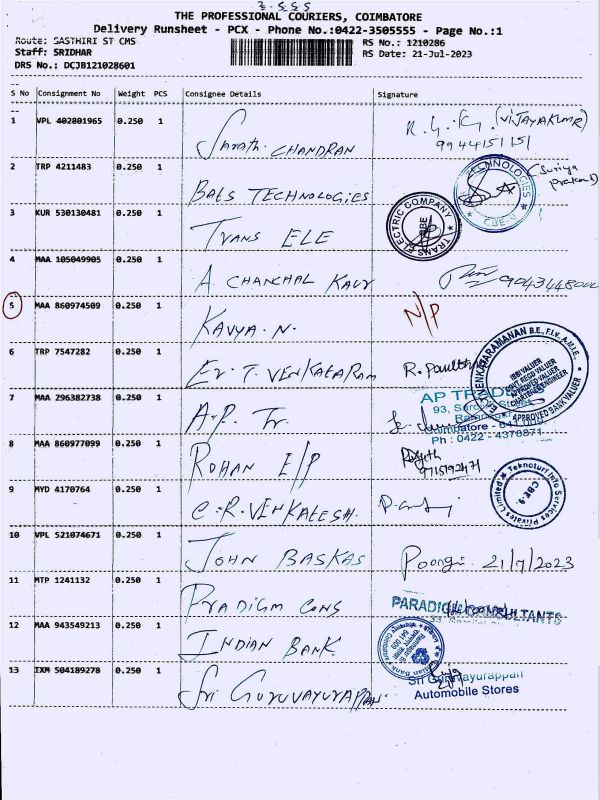 THE PROFESSIONAL COURIERS, COIMBATORE
Delivery Runsheet - PCX - Phone No.:0422-3505555 - Page No.:1
Route: SASTHIRI ST CMS
Staff: SRIDHAR
DRS No.: DCJB121028601
RS No.: 1210286
RS Date: 21-Jul-2023
S No Consignment No Weight PCS Consignee Details Signature
1 VPL 402801965 0.250 1 Sarath CHANDRAN R. G. K. (VIJAYAKUMAR)
9944151151
2 TRP 4211483 0.250 1 BALS TECHNOLOGIES TECHNOLOGIES CBE-9 (Suriya
3 KUR 530130481 0.250 1 TRANS ELE TRANS ELECTRIC COMPANY CBE
4 MAA 105049905 0.250 1 A CHANCHAL KAUR
5 MAA 860974509 0.250 1 KAVYA . N. N/P
6 TRP 7547282 0.250 1 Er. T. VENKATARAM R.
ER. VENKATARAMAN B.E., F.I.V., A.M.I.E., IBBI VALUER GOVT REGD VALUER APPROVED VALUER CHARTERED ENGINEER APPROVED BANK VALUER
7 MAA 296382738 0.250 1 A.P. Tr. AP TRADE
93,
Coimbatore - 641 009
Ph : 0422 - 4376871
8 MAA 860977099 0.250 1 ROHAN E/P
9 MYD 4170764 0.250 1 C.R. VENKATESH. Teknoturf Info Services Private Limited CBE-9.
10 VPL 521074671 0.250 1 JOHN BASKAS Poongi 21/7/2023
11 MTP 1241132 0.250 1 PRADIGM CONS PARADIGM CONSULTANTS
12 MAA 943549213 0.250 1 INDIAN BANK. Indian Bank 641 009
13 IXM 504189278 0.250 1 Sri GURUVAYURAPPAN. Sri Guruvayurappan
Automobile Stores